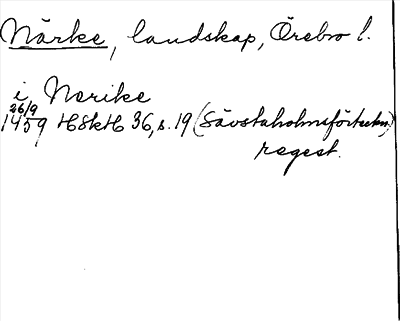 Närke, landskap, Örebro l.
i Nerike
26/9
1459 HSkH 36, s. 19 (Sävstaholmsförteckn.)
regest.